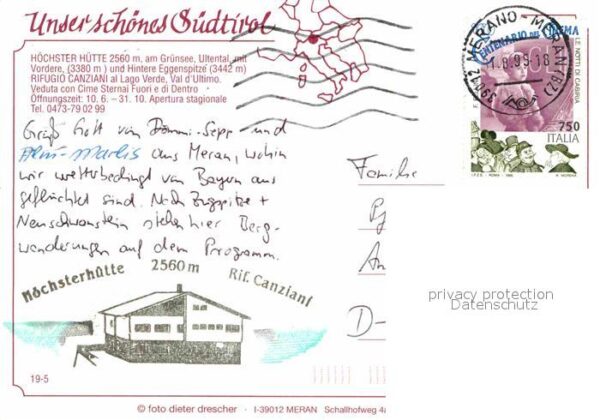 Unser schönes Südtirol
HÖCHSTER HÜTTE 2560 m. am Grünsee, Ultental, mit
Vordere, (3380 m) und Hintere Eggenspitze (3442 m)
RIFUGIO CANZIANI al Lago Verde, Val d'Ultimo.
Veduta con Cime Sternai Fuori e di Dentro
Öffnungszeit: 10. 6. – 31. 10. Apertura stagionale
Tel. 0473-79 02 99
Grüß Gott von Sepp und
Marlis aus Meran, wohin
wir wetterbedingt von Bayern aus
geflüchtet sind. Nach Zugspitze +
Neuschwanstein stehen hier Berg-
wanderungen auf dem Programm.
Höchsterhütte 2560 m Rif. Canziani
19-5
© foto dieter drescher · I-39012 MERAN Schallhofweg 4
39012 MERANO - MERAN (BZ)
CENTENARIO DEL CINEMA
LE NOTTI DI CABIRIA
750
ITALIA
Familie
D-
privacy protection
Datenschutz